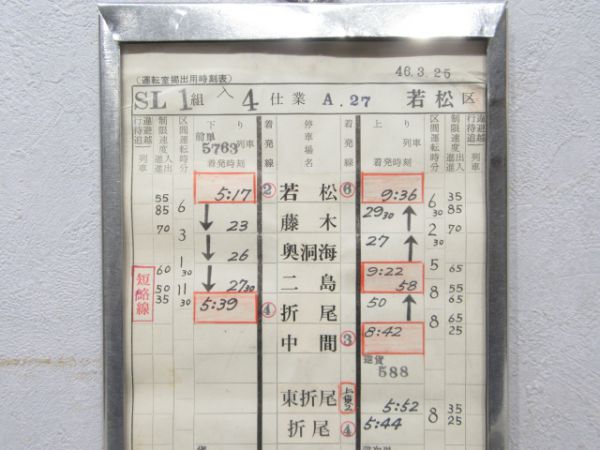 (運転室掲出用時刻表)
46.3.25
SL 1組 入 4仕業 A.27 若松区
行違待避追越 列車
制限速度 進入 進出
区間運転時分
下り
前単 5763 列車
着発時刻
着発線
停車場名
着発線
上り
列車
着発時刻
区間運転時分
制限速度 進入 進出
行違待避追越 列車
5:17 ② 若松 ⑥ 9:36
55 85 6 6 30 35 85
↓ 23 藤木 29 30 ↑
70 3 2 30 70
↓ 26 奥洞海 27 ↑
1 30 5 65
60 ↓ 27 30 二島 9:22 58
短絡線 50 35 11 30 8 65 55
5:39 ④ 折尾 50 ↑
8 65 25
中間 ③ 8:42
逆貨 588
東折尾 5:52
8 35 25
折尾 ④ 5:44
貨